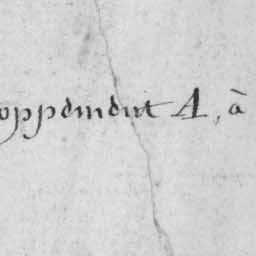 oppement A, à